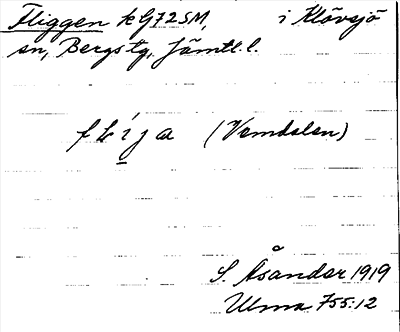 Fliggen kG72SM, i Klövsjö
sn, Bergs tg, Jämtl. l.
(Vemdalen)
S. Åsander 1919
Ulma 755:12